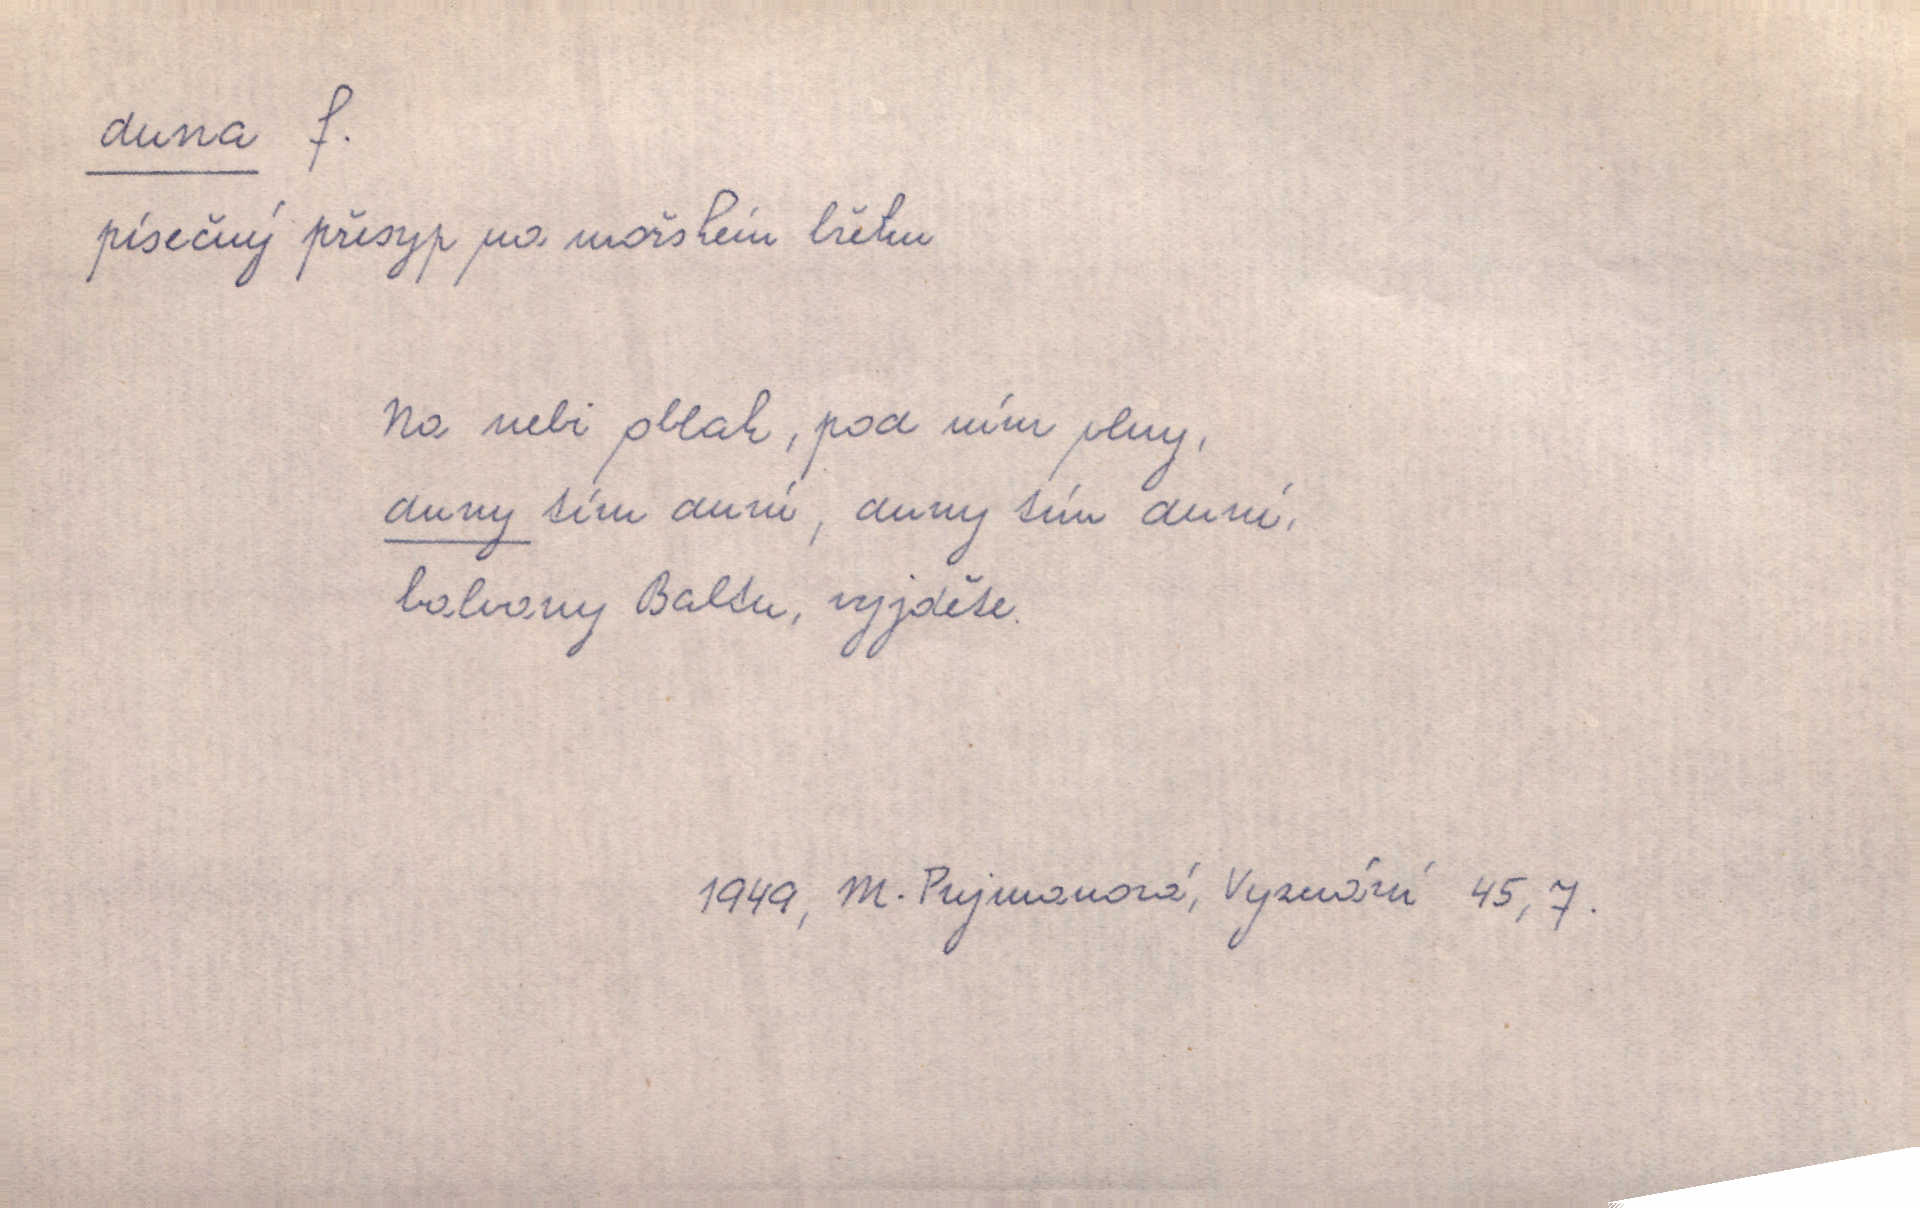 duna f.
písečný přesyp na mořském břehu
Na nebi oblak, pod ním vlny,
duny tím duní, duny tím duní,
balvany Baltu, vyjděte.
1949, M. Pujmanová, Vyznání 45, 7.